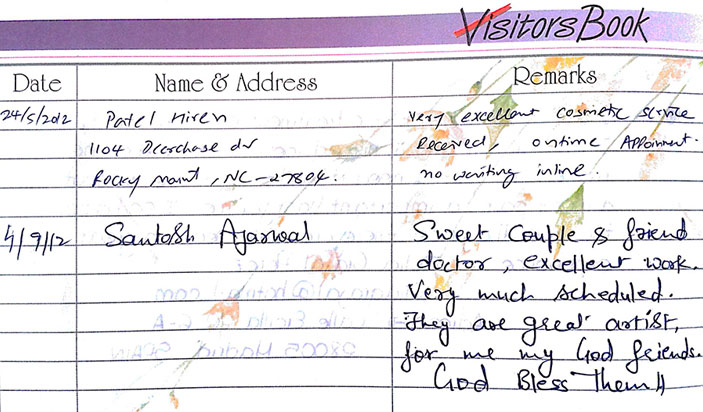 Visitors Book
Date Name & Address Remarks
24/5/2012 Patel Hiren Very excellent cosmetic service
1104 Deerchase dr Received, ontime Appoinment.
Rocky mount, NC-27804. no waiting inline.
4/9/12 Santosh Agarwal Sweet Couple & friend
doctor, excellent work.
Very much scheduled.
They are great artist,
for me my God friends.
God Bless Them!!